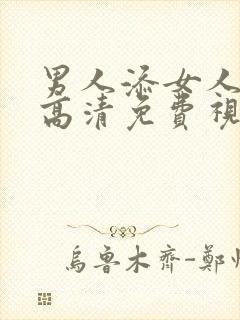 男人添女人
高清免費視
烏魯木齊-鄭州